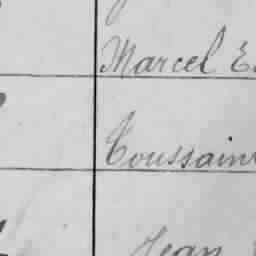 Marcel E.
Toussain
Jean